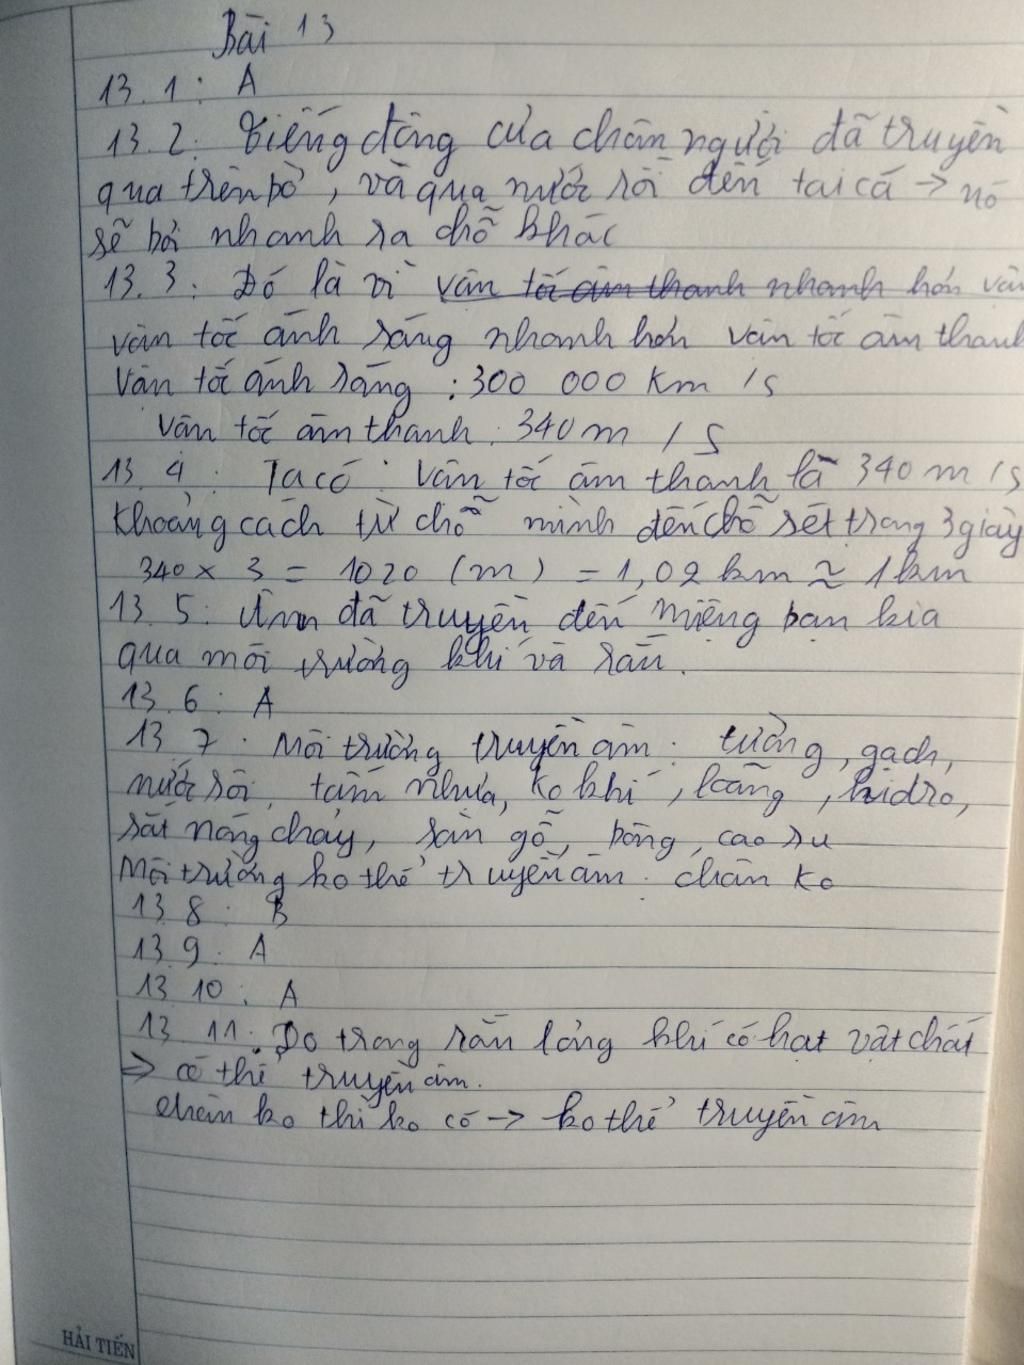 Bài 13
13.1: A
13.2: Tiếng động của chân người đã truyền
qua trên bờ, và qua nước rồi đến tai cá → nó
sẽ bơi nhanh ra chỗ khác
13.3: Đó là vì vận tốc âm thanh nhanh hơn vận
vận tốc ánh sáng nhanh hơn vận tốc âm thanh
Vận tốc ánh sáng : 300 000 km /s
vận tốc âm thanh : 340 m / s
13.4: Ta có : Vận tốc âm thanh là 340 m /s
Khoảng cách từ chỗ mình đến chỗ sét trong 3 giây
340 x 3 = 1020 (m) = 1,02 km ≈ 1 km
13.5: Âm đã truyền đến miệng bạn kia
qua môi trường khí và rắn.
13.6: A
13.7: Môi trường truyền âm : tường, gạch,
nước sôi, tấm nhựa, ko khí, loãng, hidro,
sắt nóng chảy, sàn gỗ, bông, cao su
Môi trường ko thể truyền âm : chân ko
13.8: B
13.9: A
13.10: A
13.11: Do trong rắn lỏng khí có hạt vật chất
=> có thể truyền âm.
chân ko thì ko có → ko thể truyền âm
HẢI TIẾN